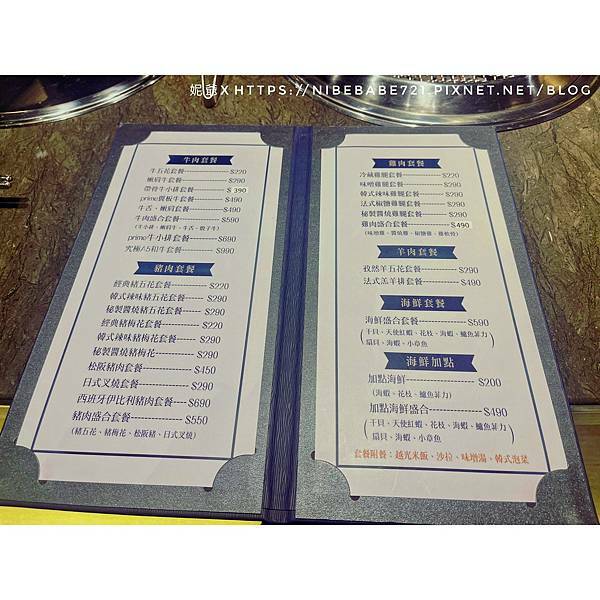 妮爺X HTTPS://NIBEBABE721.PIXNET.NET/BLOG
牛肉套餐
牛五花套餐 $220
嫩肩牛套餐 $290
帶骨牛小排套餐 $ 390
prime翼板牛套餐 $490
牛舌、嫩肩套餐 $490
牛肉盛合套餐 $590
(牛小排、嫩肩牛、牛舌、骰子牛)
prime牛小排套餐 $690
究極A5和牛套餐 $990
豬肉套餐
經典豬五花套餐 $220
韓式辣味豬五花套餐 $290
秘製醬燒豬五花套餐 $290
經典豬梅花套餐 $220
韓式辣味豬梅花套餐 $290
秘製醬燒豬梅花 $290
松阪豬肉套餐 $450
日式叉燒套餐 $290
西班牙伊比利豬肉套餐 $690
豬肉盛合套餐 $550
(豬五花、豬梅花、松阪豬、日式叉燒)
雞肉套餐
冷藏雞腿套餐 $220
味噌雞腿套餐 $290
韓式辣味雞腿套餐 $290
法式椒鹽雞腿套餐 $290
秘製醬燒雞腿套餐 $290
雞肉盛合套餐 $490
(味噌雞、醬燒雞、椒鹽雞、雞軟骨)
羊肉套餐
孜然羊五花套餐 $290
法式羔羊排套餐 $490
海鮮套餐
海鮮盛合套餐 $590
(干貝、天使紅蝦、花枝、海蝦、鱸魚菲力
扇貝、海蝦、小章魚)
海鮮加點
加點海鮮 $200
(海蝦、花枝、鱸魚菲力)
加點海鮮盛合 $490
(干貝、天使紅蝦、花枝、海蝦、鱸魚菲力
扇貝、海蝦、小章魚)
套餐附餐：越光米飯、沙拉、味增湯、韓式泡菜